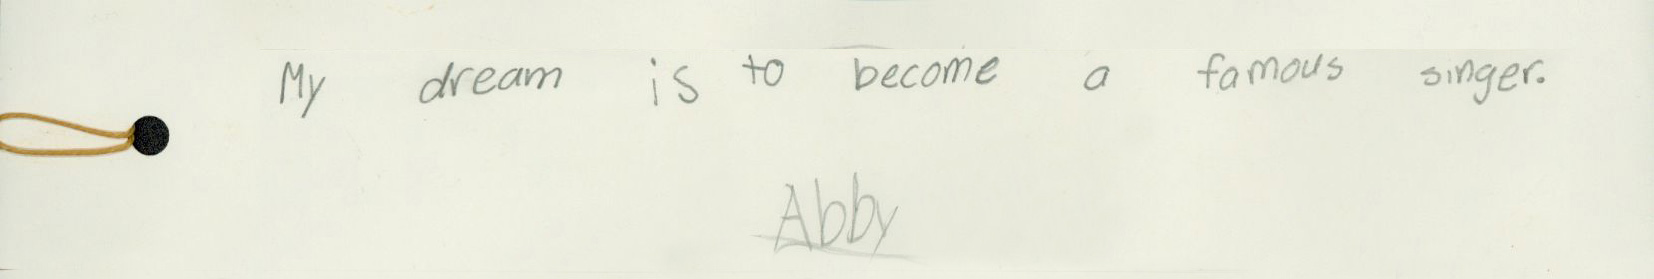 My dream is to become a famous singer.
Abby